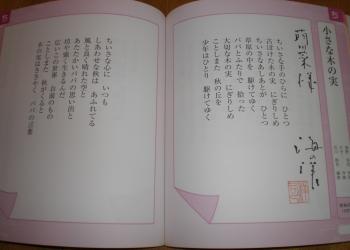 ち
小さな木の実
様
ちいさな手のひらに ひとつ
古ぼけた木の実 にぎりしめ
ちいさなあしあとが ひとつ
草原の中を 駆けてゆく
パパとふたりで 拾った
大切な木の実 にぎりしめ
ことしまた 秋の丘を
少年はひとり 駆けてゆく
ち
ちいさな心に いつも
しあわせな秋は あふれてる
風と良く晴れた空と
あたたかいパパの思い出と
坊や強く生きるんだ
広いこの世界 お前のもの
ことしまた 秋がくると
木の実はささやく パパの言葉